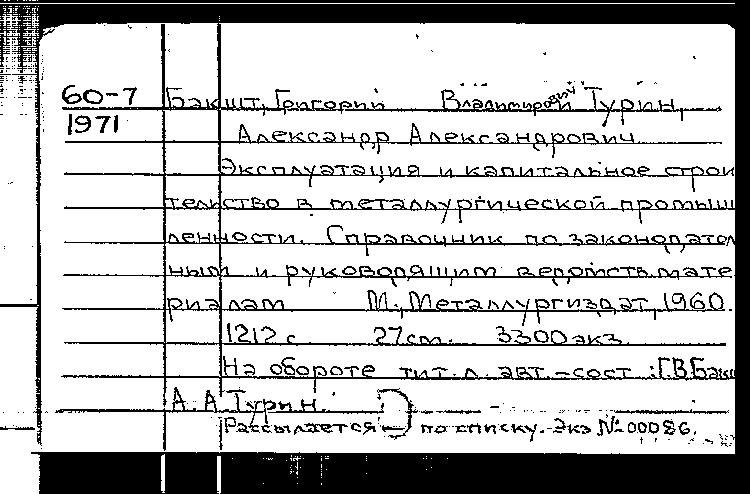 60-7 Бакшт, Григорий Владимирович Турин,
1971 Александр Александрович
Эксплуатация и капитальное строи
тельство в металлургической промыш
ленности. Справочник по законодател
ным и руководящим ведомств. мате
риалам М., Металлургиздат, 1960.
1212 с 27 см. 3300 экз
На обороте тит. л. авт.-сост.: Г.В. Бакш
А. А. Турин.
Рассылается по списку. Экз № 00086.